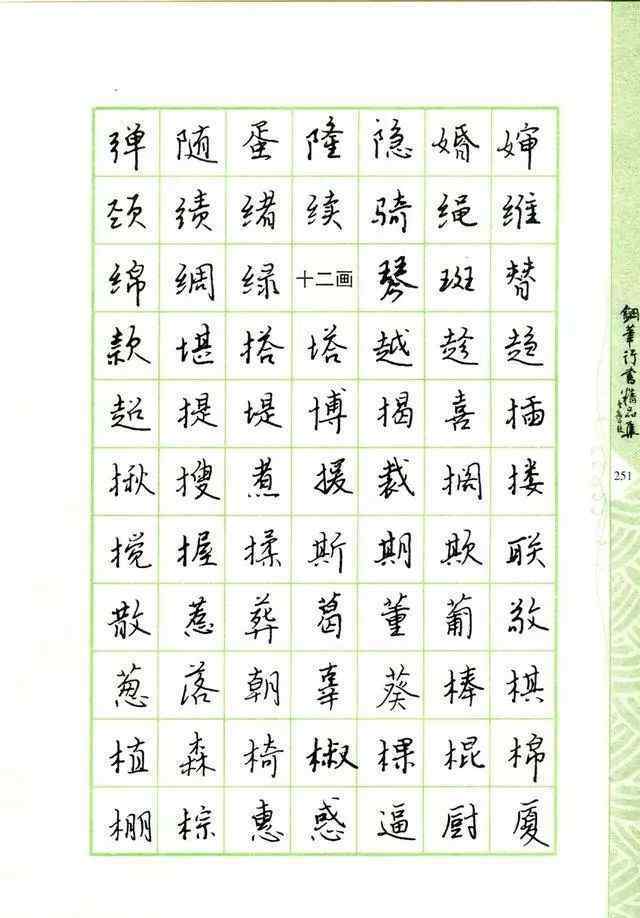 弹随蛋隆隐婚婶
颈绩绪续骑绳维
绵绸绿十二画琴斑替
款堪搭塔越趁趋
超提堤博揭喜插
揪搜煮援裁搁搂
搅握揉斯期欺联
散惹葬葛董葡敬
葱落朝辜葵棒棋
植森椅椒棵棍棉
棚棕惠惑逼厨厦
钢笔行书精品集
251